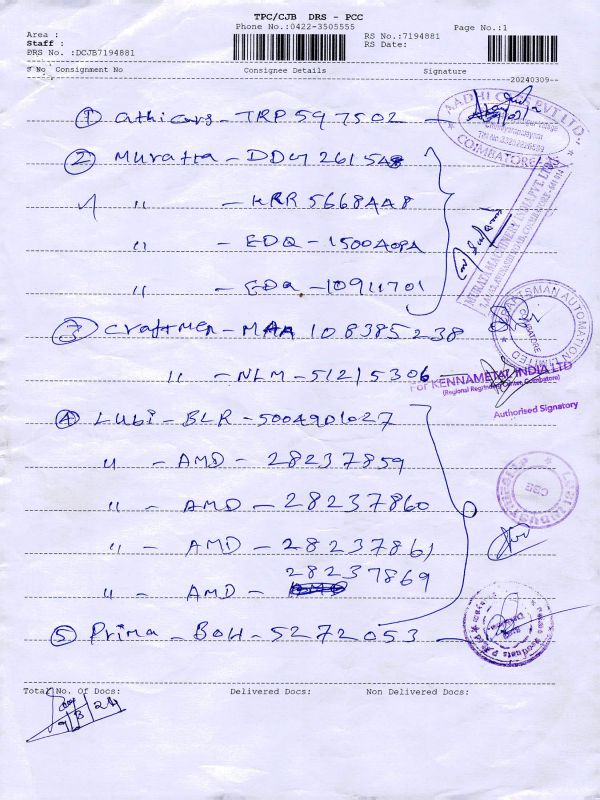 TPC/CJB DRS - PCC
Phone No.:0422-3505555
Page No.:1
Area :
Staff :
DRS No. :DCJB7194881
RS No.:7194881
RS Date:
S No Consignment No Consignee Details Signature
20240309
① athi cars - TRP 597502
② Muratta - DD
" - KRR 5668448
" - EDQ - 1500A0PA
" - EDQ - 10911701
③ Craftmen - MAA 108385238
" - NLM - 51215306
④ Lubi - BLR - 5004901027
" - AMD - 28237859
" - AMD - 28237860
" - AMD - 28237861
" - AMD - 28237869
⑤ Prima - BOH - 5272053
AADHI CARS PVT LTD
COIMBATORE
CRAFTSMAN AUTOMATION LIMITED
COIMBATORE
For KENNAMETAL INDIA LTD
(Regional Regrinding Center, Coimbatore)
Authorised Signatory
CBE
Total No. Of Docs: Delivered Docs: Non Delivered Docs: